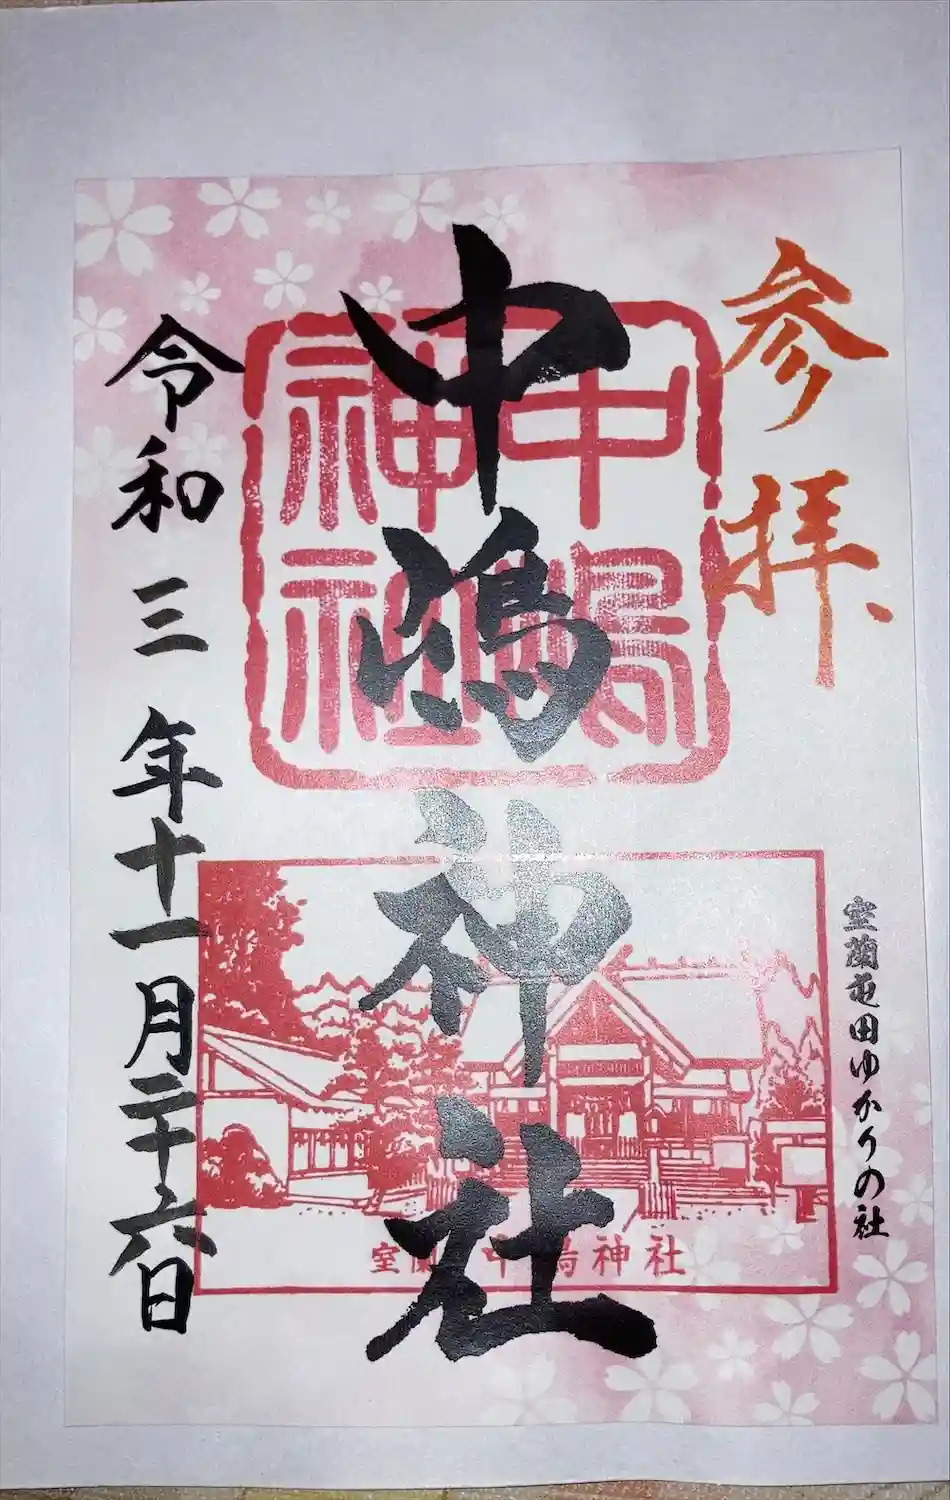 参拝
室蘭屯田ゆかりの社
中嶋神社
中嶋神社
室蘭 中嶋神社
令和三年十一月二十六日